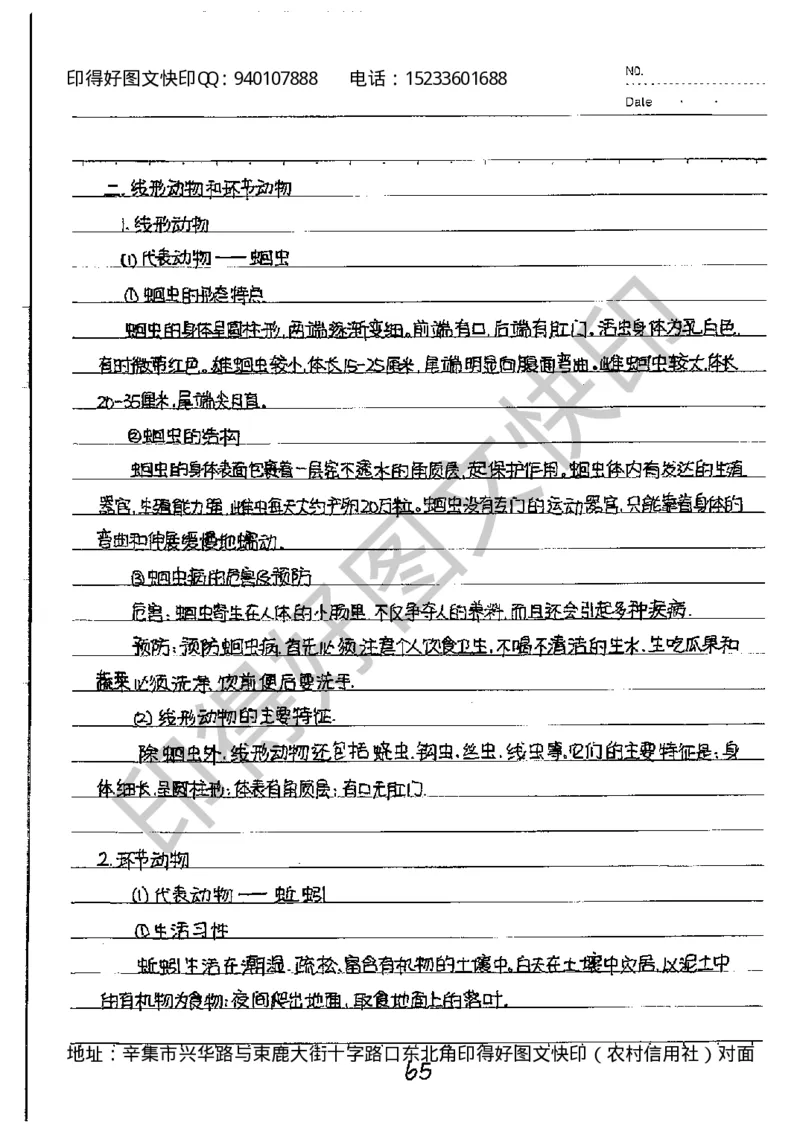 印得好图文快印QQ：940107888 电话：15233601688
NO.
Date
二.线形动物和环节动物
1.线形动物
(1)代表动物——蛔虫
①蛔虫的形态特点
蛔虫的身体呈圆柱形,两端逐渐变细。前端有口,后端有肛门。活虫身体为乳白色,
有时微带红色。雄蛔虫较小,体长15-25厘米,尾端明显向腹面弯曲。雌蛔虫较大,体长
20-35厘米,尾端尖且直。
②蛔虫的结构
蛔虫的身体表面包裹着一层密不透水的角质层,起保护作用。蛔虫体内有发达的生殖
器官,生殖能力强,雌虫每天大约产卵20万粒。蛔虫没有专门的运动器官,只能靠着身体的
弯曲和伸展缓慢地蠕动。
③蛔虫病的危害及预防
危害:蛔虫寄生在人体的小肠里,不仅争夺人的养料,而且还会引起多种疾病.
预防:预防蛔虫病,首先必须注意个人饮食卫生,不喝不清洁的生水.生吃瓜果和
蔬菜必须洗净,饭前便后要洗手.
(2)线形动物的主要特征.
除蛔虫外,线形动物还包括蛲虫.钩虫.丝虫.线虫等。它们的主要特征是:身
体细长,呈圆柱形;体表有角质层;有口无肛门.
2.环节动物
(1)代表动物——蚯蚓
①生活习性
蚯蚓生活在潮湿.疏松.富含有机物的土壤中。白天在土壤中穴居,以泥土中
的有机物为食物;夜间爬出地面,取食地面上的落叶。
地址：辛集市兴华路与束鹿大街十字路口东北角印得好图文快印（农村信用社）对面
65
印得好图文快印